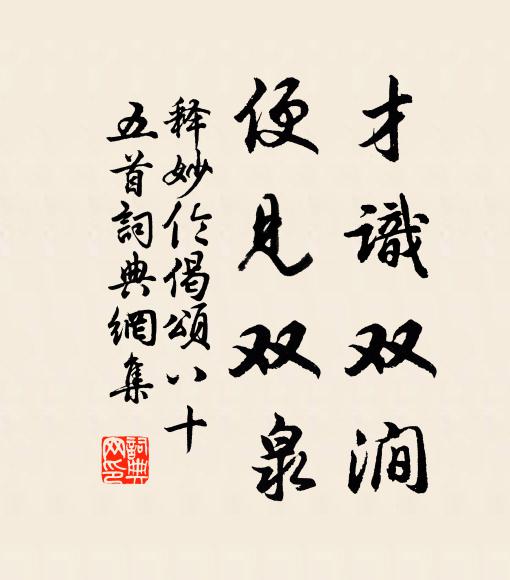 才識双澗
便見双泉
释妙伦偈頌八十
五首詞典網集
詞典网印